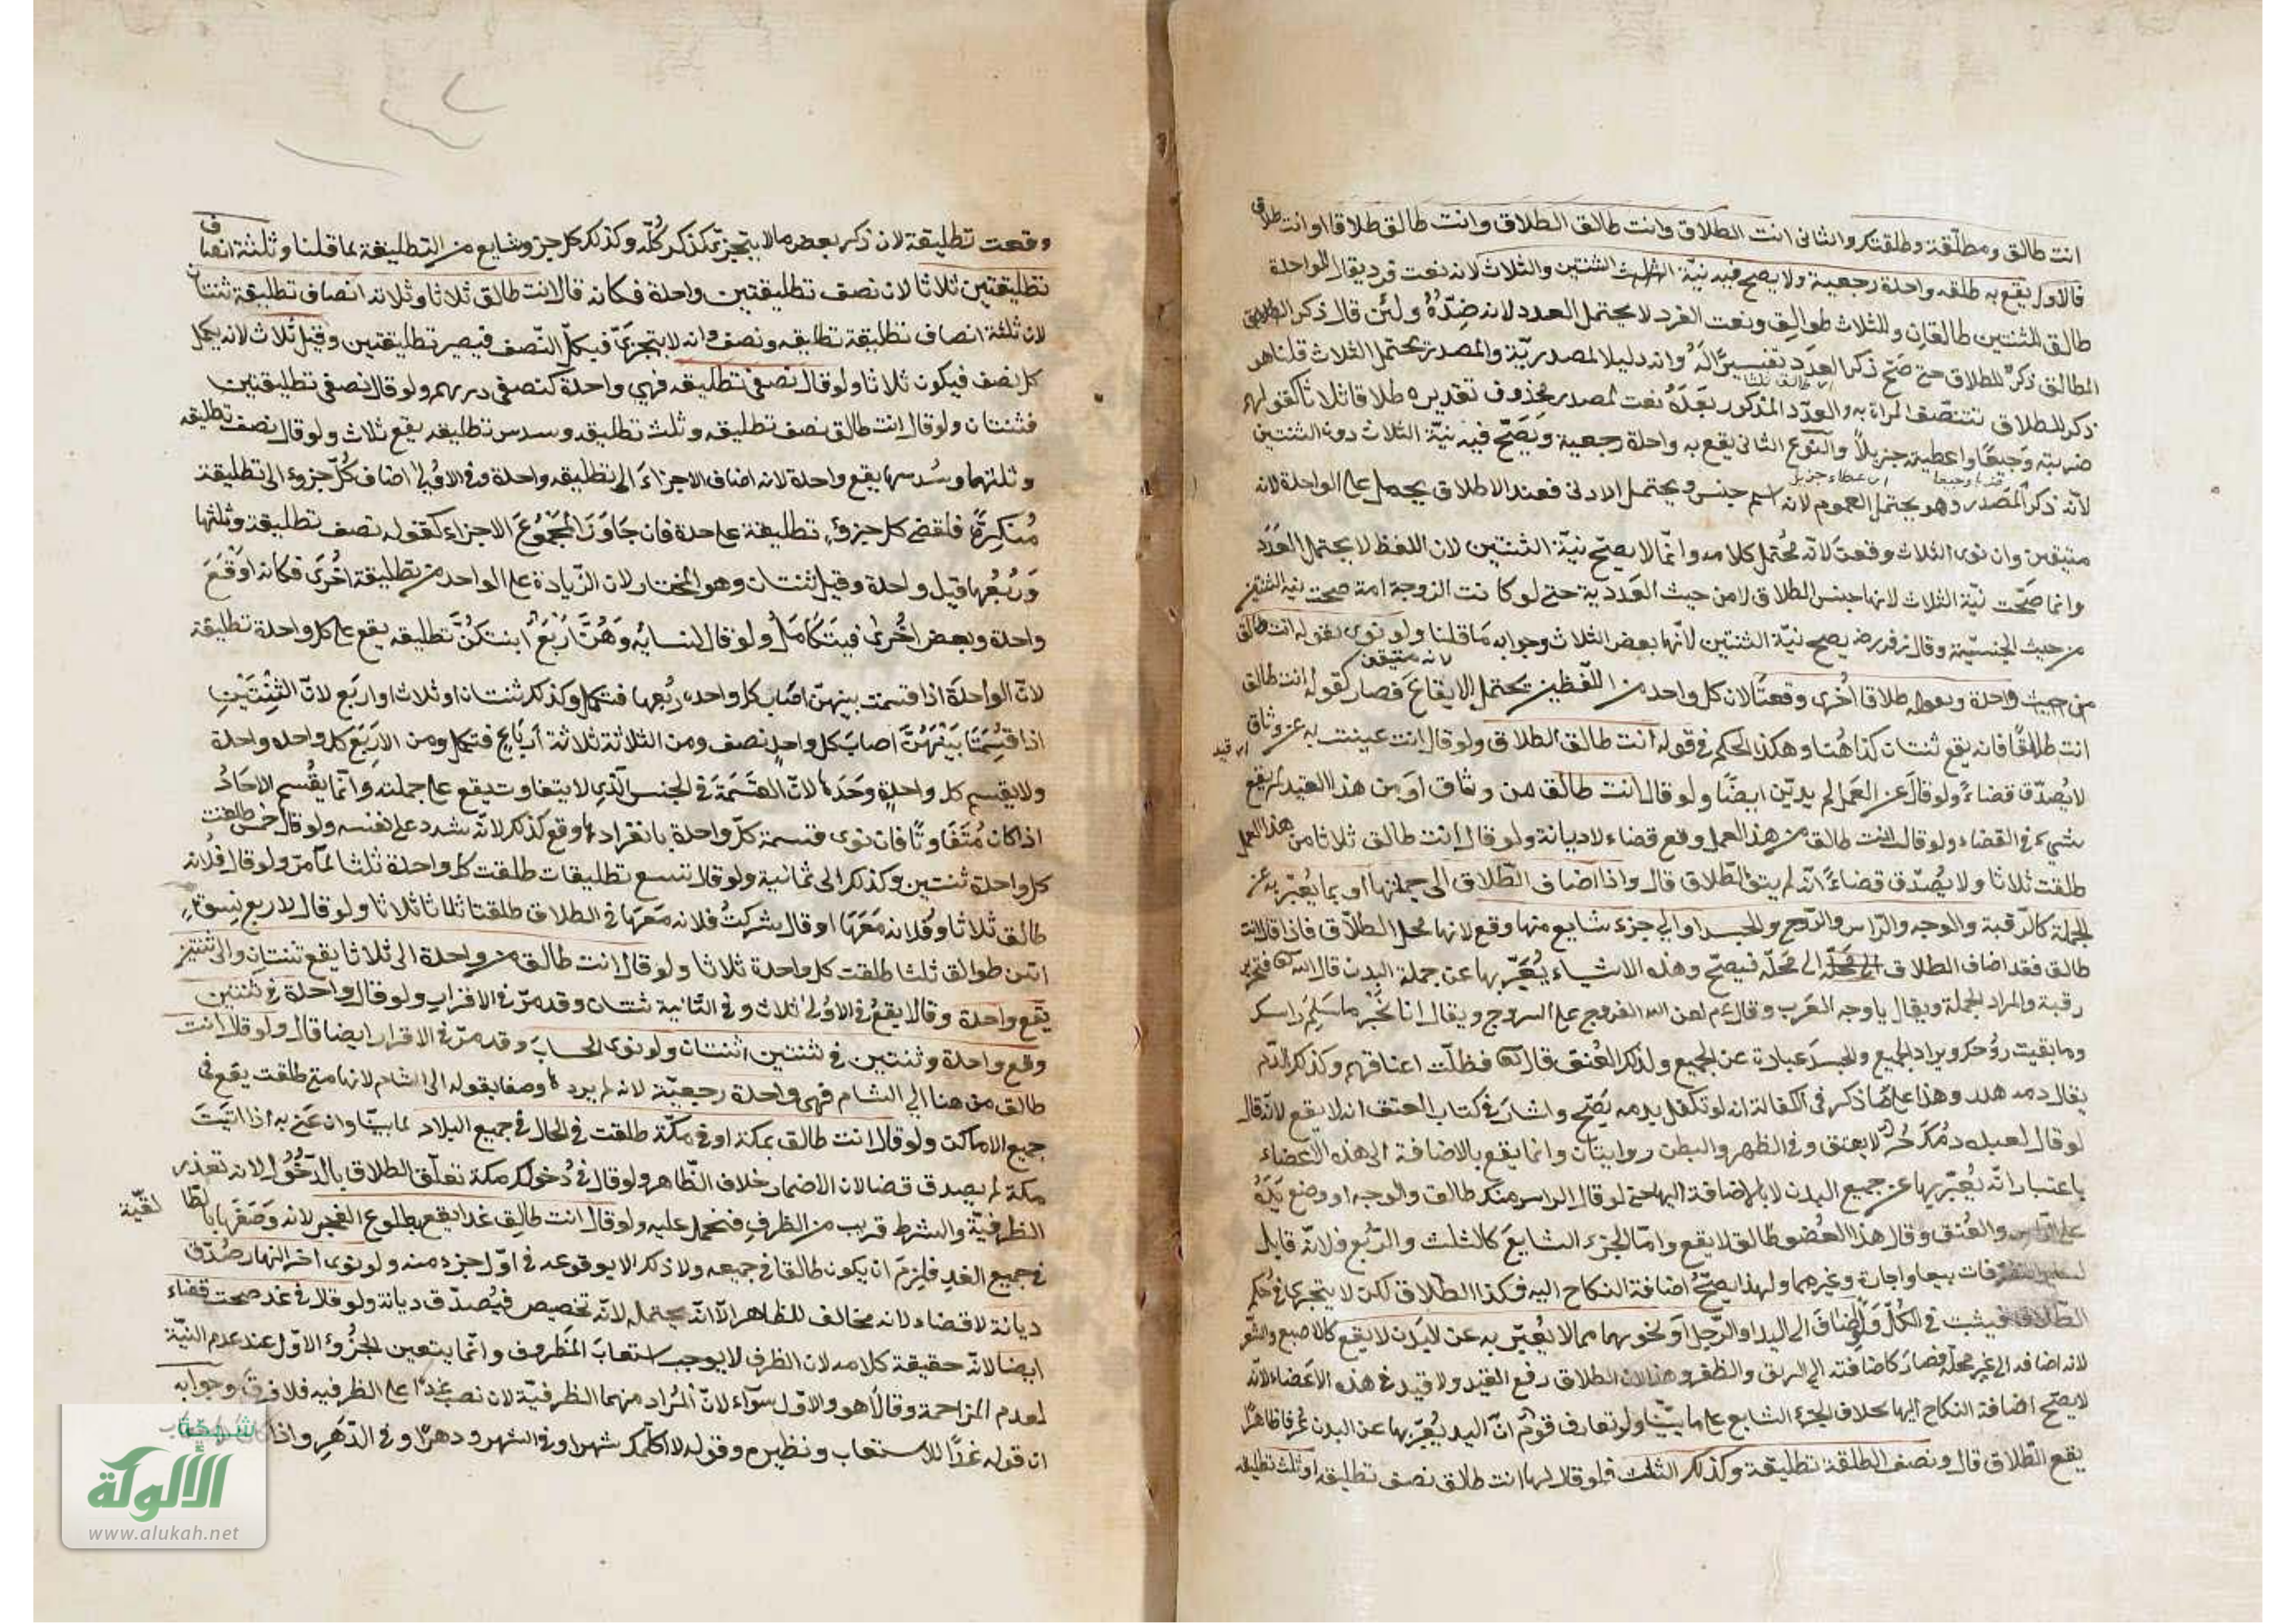 انت طالق ومطلّقة وطلقتك والثانى انت الطلاق وانت طالق الطلاق وانت طالق طلاقا او انت طلاق
فالاول يقع به طلقه واحدة رجعية ولا يصح فيه نيّة الثنتين والثلاث لانه نعت فرد يقال للواحدة
طالق للثنتين طالقان وللثلاث طوالق ونعت الفرد لا يحتمل العدد لانه ضدّهُ ولئن قال ذكر الطالق
الطالق ذكرٌ للطلاق حتى صَحّ ذكر العدَد تفسيرًا لَهُ وانه دليل المصدريّة والمصدر يحتمل الثلاث قلنا هو
ذكر للطلاق تتصّف المرأة به والعدَد المذكور بَعدَهُ نعت لمصدر محذوف تقديره طلاقا ثلاثا كقولهم
ضربته وَجِيعًا واعطيته جزيلاً والنّوع الثانى يقع به واحدة رجعية ويَصَحّ فيه نيّة الثلاث دون الثنتين
لأنّه ذكر المَصْدر وهو يحتمل العموم لانه اسم جنس ويحتمل الادنى فعند الاطلاق يحمل على الواحدة لانه
متيقن وان نوى الثلاث وقعت لانّه مُحتمل كلامه وانّما لا يصحّ نيّة الثنتين لان اللفظ لا يحتمل العَدَدَ
وانما صَحّت نيّة الثلاث لانها جنس الطلاق لا من حيث العَدَديّة حتى لو كانت الزوجة امة صحت نية الثنتين
من حيث الجنسيّة وقال زفر رضـ يصح نيّة الثنتين لانّها بعض الثلاث وجوابه مَا قلنا ولو نوى بقوله انت طالق
واحدة وبقوله طلاقا اخرى وقعتَا لان كل واحد من اللفظين يحتمل الايقاع فصار كقوله انت طالق
انت طالقًا فانه يقع ثنتان كذا هُنا وهكذا الحكم فى قوله انت طالق الطلاق ولو قال انت عينت به عن وثاق
لا يُصدّق قضاءً ولو قال عن العَمَل لم يديّن ايضًا ولو قال انت طالق من وثاق اوَ من هذا القيد لم يقع
شيء فى القضاء ولو قال انت طالق من هذا العمل وقع قضاء لا ديانة ولو قال انت طالق ثلاثا من هذا العمل
طلقت ثلاثا ولا يصُدّق قضاءً انّه لم ينو الطّلاق قال واذا اضاف الطّلاق الى جملتها او بما يُعَبّر به عن
الجملة كالرّقبة والوجه والرّاس والرّوح والجسد او الى جزء شايع منها وقع لانها محل الطّلاق فاذا قال انت
طالق فقد اضاف الطلاق الى مَحَلّه فيصحّ وهذه الاشياء يُعَبّر بها عن جملة البدن قال الله تعالى فتحرير
رقبة والمراد الجملة ويقال يا وجه العَرب وقال عم لعن الله الفروج على السروج ويقال انا بخير ما سَلِمَ راسك
وما بقيت روُحك ويراد الجميع والجسدَ عبارة عن الجميع وكذا العُنق قال تعالى فظلّت اعناقهم وكذلك الدّم
يقال دمه هدر وهذا على مَا ذكر فى الكفالة انه لو تكفّل بدمه يَصّح واشارَ فى كتاب العتق انه لا يقع لانّه قال
لو قال لعبده دمُك حُرّ لا يعتق وفى الظهر والبطن روايتان وانما يقع بالاضافة الى هذه الاَعضاء
باعتبار انّه يُعَبّر بها عن جميع البدن لا بالاضافة اليها حتى لو قال الراس منك طالق والوجه او وضع يَدَهُ
على الرّاس والعُنق وقال هذا العُضو طالق لا يقع وامّا الجزء الشايعَ كالثلث والرّبع فلانّه قابل
لسائر التصرّفات بيعا واجارة وغيرهما ولهذا يصحّ اضافة النكاح اليه فكذا الطّلاق لكن لا يتجزى فى حُكم
الطّلاق فيثبت فى الكُلّ وَلو اَضَافَ الى اليد او الرّجل اَو نحوهما مما لا يُعَبّر به عن البَدن لا يقع كالاصبع والشّعر
لانه اضافه الى غير محلّه فصارَ كاضافته الى الريق والظفر وهذا لان الطلاق رفع القيد ولا قيد فى هذه الاَعضاء لانّه
لا يصحّ اضافة النكاح اليها بخلاف الجزء الشايع على ما بيّنا ولو تعارف قومٌ انّ اليد يُعَبّر بها عن البدن عُرفا ظاهرًا
يقع الطّلاق قال ونصف الطلقة تطليقة وكذلك الثلث فلو قال لها انت طالق نصف تطليقه او ثلث تطليقه
وقعت تطليقة لان ذكر بعض ما لا يتجزى كذكر كُلّه وكذلك كل جزو شايع من التطليقة لما قلنا وثلثة انصاف
تطليقتين ثلاثا لان نصف تطليقتين واحدة فكانه قال انت طالق ثلاثا وثلاثه انصاف تطليقة ثنتان
لان ثلثة انصاف تطليقة تطليقه ونصف وانه لا يتجزى فيكمّل النّصف فيصير تطليقتين وقيل ثلاث لانه يكمل
كل نصف فيكون ثلاثا ولو قال نصفى تطليقه فهي واحدة كنصفى درهم ولو قال نصفى تطليقتين
فثنتان ولو قال انت طالق نصف تطليقه وثلث تطليقه وسدس تطليقه يقع ثلاث ولو قال نصف تطليقه
وثلثها وسُدسها يقع واحدة لانه اضاف الاجزاءَ الى تطليقه واحدة وفى الاوُلى اضاف كُلّ جزوء الى تطليقة
مُنَكرةٍ فاقتضى كل جزؤ تطليقة على حدة فان جَاوَزَ مَجْمُوُعَ الاجزاء كقوله نصف تطليقة وثلثها
وَرُبُعُها قيل واحدة وقيل ثنتان وهو المختار لان الزّيادة على الواحد من تطليقة اخُرَى فكانه اَوْقَعَ
واحدة وبعض اخُرىٰ فيتَكَامَلُ ولو قال لنسائه وَهُنَّ اَرْبَعٌ بينكنَّ تطليقه يقع على كل واحدة تطليقة
لانّ الواحدَة اذا قسمت بينهنّ اصَاب كل واحده رُبُعها فتكمل وكذلك ثنتان او ثلاث او اربَع لانّ الثِنْتَيْنِ
اذا قسِمَتَا بَيْنَهُنَّ اصابَ كل واحدٍ نصف ومن الثلاثة ثلاثة اَرباَعٍ فتكمل ومن الاَرَبَع كل واحده واحدة
ولا يقسم كل واحدةٍ وَحَدَها لانّ القسَمَة فى الجنس الّذي لا يتفاوت يقع على جملته وانّما يقُسم الاحَادُ
اذا كان مُتَفَاوتًا فان نوى قسمة كلّ واحدة بانفرادها وقع كذلك لانّه شدد على نفسه ولو قال خمس طلقت
كل واحدة ثنتين وكذلك الى ثمانية ولو قال تسع تطليقات طلقت كل واحدة ثلثا لما مرّ ولو قال فلانه
طالق ثلاثا وفُلانه مَعَهَا او قال شركتُ فلانه مَعَهَا فى الطلاق طلقتا ثلاثا ثلاثا ولو قال لاربع نسوةٍ
انتن طوالق ثلثا طلقت كل واحدة ثلاثا ولو قال انت طالق من واحدة الى ثلاثا يقع ثنتان والى ثنتين
يقع واحدة وقالا يقعُ فى الاوُلى ثلاث وفى الثّانية ثنتان وقد مرّ فى الاقرار ولو قال واحدة فى ثنتين
وقع واحدة وثنتين فى ثنتين اثنتان ولو نوى الحسابَ وقد مرّ فى الاقرار ايضا قال ولو قال انت
طالق من هنا الي الشام فهى واحدة رجعيّة لانه لم يردها وصفا بقوله الى الشام لانها متى طلقت يقع فى
جميع الاماكن ولو قال انت طالق بمكة او فى مكّة طلقت فى الحال فى جميع البلاد لما بينّا وان عَنى به اذا اتَيَتَ
مكة لم يصدق قضا لان الاضمار خلاف الظّاهر ولو قال فى دُخولك مكة تعلّق الطلاق بالدّخُوُل لانه تعذر
الظرفيّة والشرط قريب من الظرف فتحمل عليه ولو قال انت طالِق غدا يقع بطلوع الفجر لانه وَصَفَها بالطّا
لقيّة
فى جميع الغدِ فلزمَ ان يكون طالقا فى جميعه ولا ذلك الا بوقوعه فى اوّل جزء منه ولو نوى اخر النهار صُدّق
ديانة لا قضاء لانه مخالف للظاهر الاّ انّه يحتمله لانّه تخصيص فيُصدّق ديانة ولو قال فى غد صحت قضاء
ايضا لانّه حقيقة كلامه لان الظرف لا يوجب استعابَ المَظروف وانّما يتعين الجزُؤ الاوّل عند عدم النيّة
لعدم المزاحمة وقالاَ هو والاوّل سَوآء لانّ المُراد منهما الظرفيّة لان نصب غدًا على الظرفيه فلا فرق وجوابه
ان قوله غدًا للاستعاب ونظيره وقوله لا اكلّمك شهرا وفى الشهر ودهرًا وفى الدّهر واذا
شبكة
الألوكة
www.alukah.net